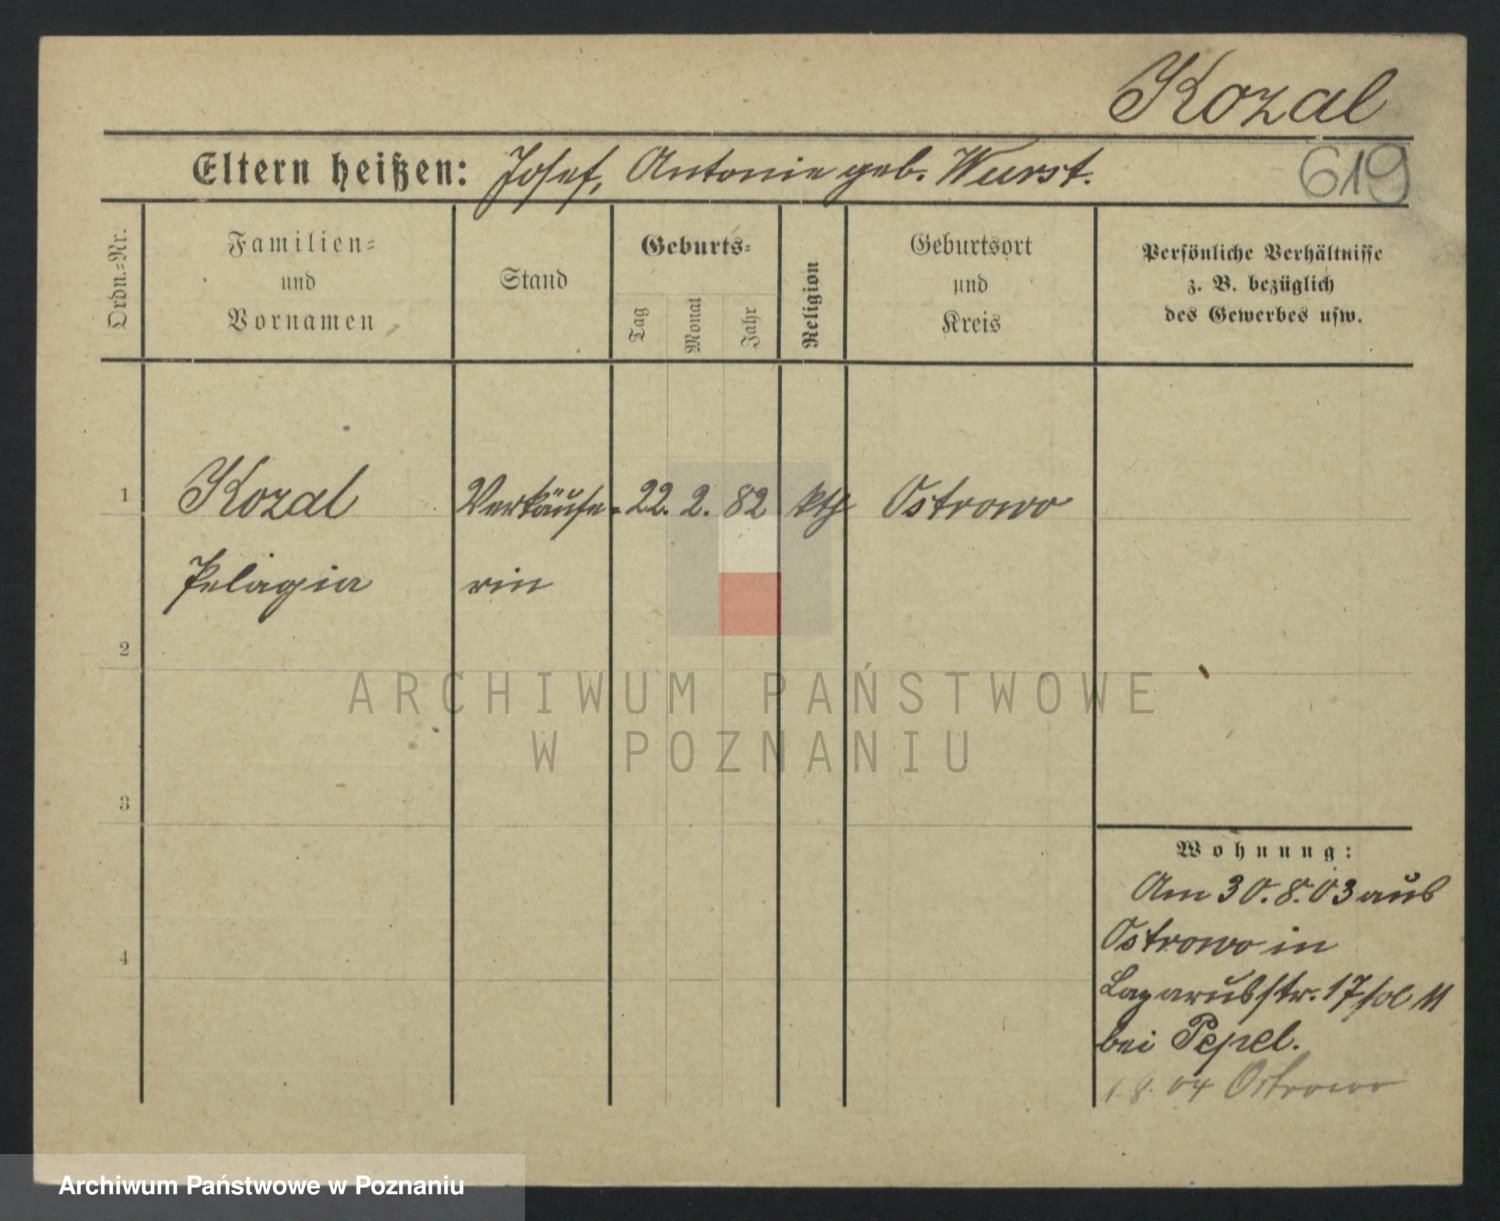 Kozal
Eltern heißen: Josef, Antonie geb. Wurst.
619
Ordn.=Nr.
Familien=
und
Vornamen
Stand
Geburts=
Tag
Monat
Jahr
Religion
Geburtsort
und
Kreis
Persönliche Verhältnisse
z. B. bezüglich
des Gewerbes usw.
1 Kozal Verkäufe- 22. 2. 82 kth Ostrowo
Pelagia rin
2
ARCHIWUM PAŃSTWOWE
W POZNANIU
3
Wohnung:
Am 30.8.03 aus
Ostrowo in
4
Lazarusstr. 17
bei Pepel.
1.8.04 Ostrowo
Archiwum Państwowe w Poznaniu